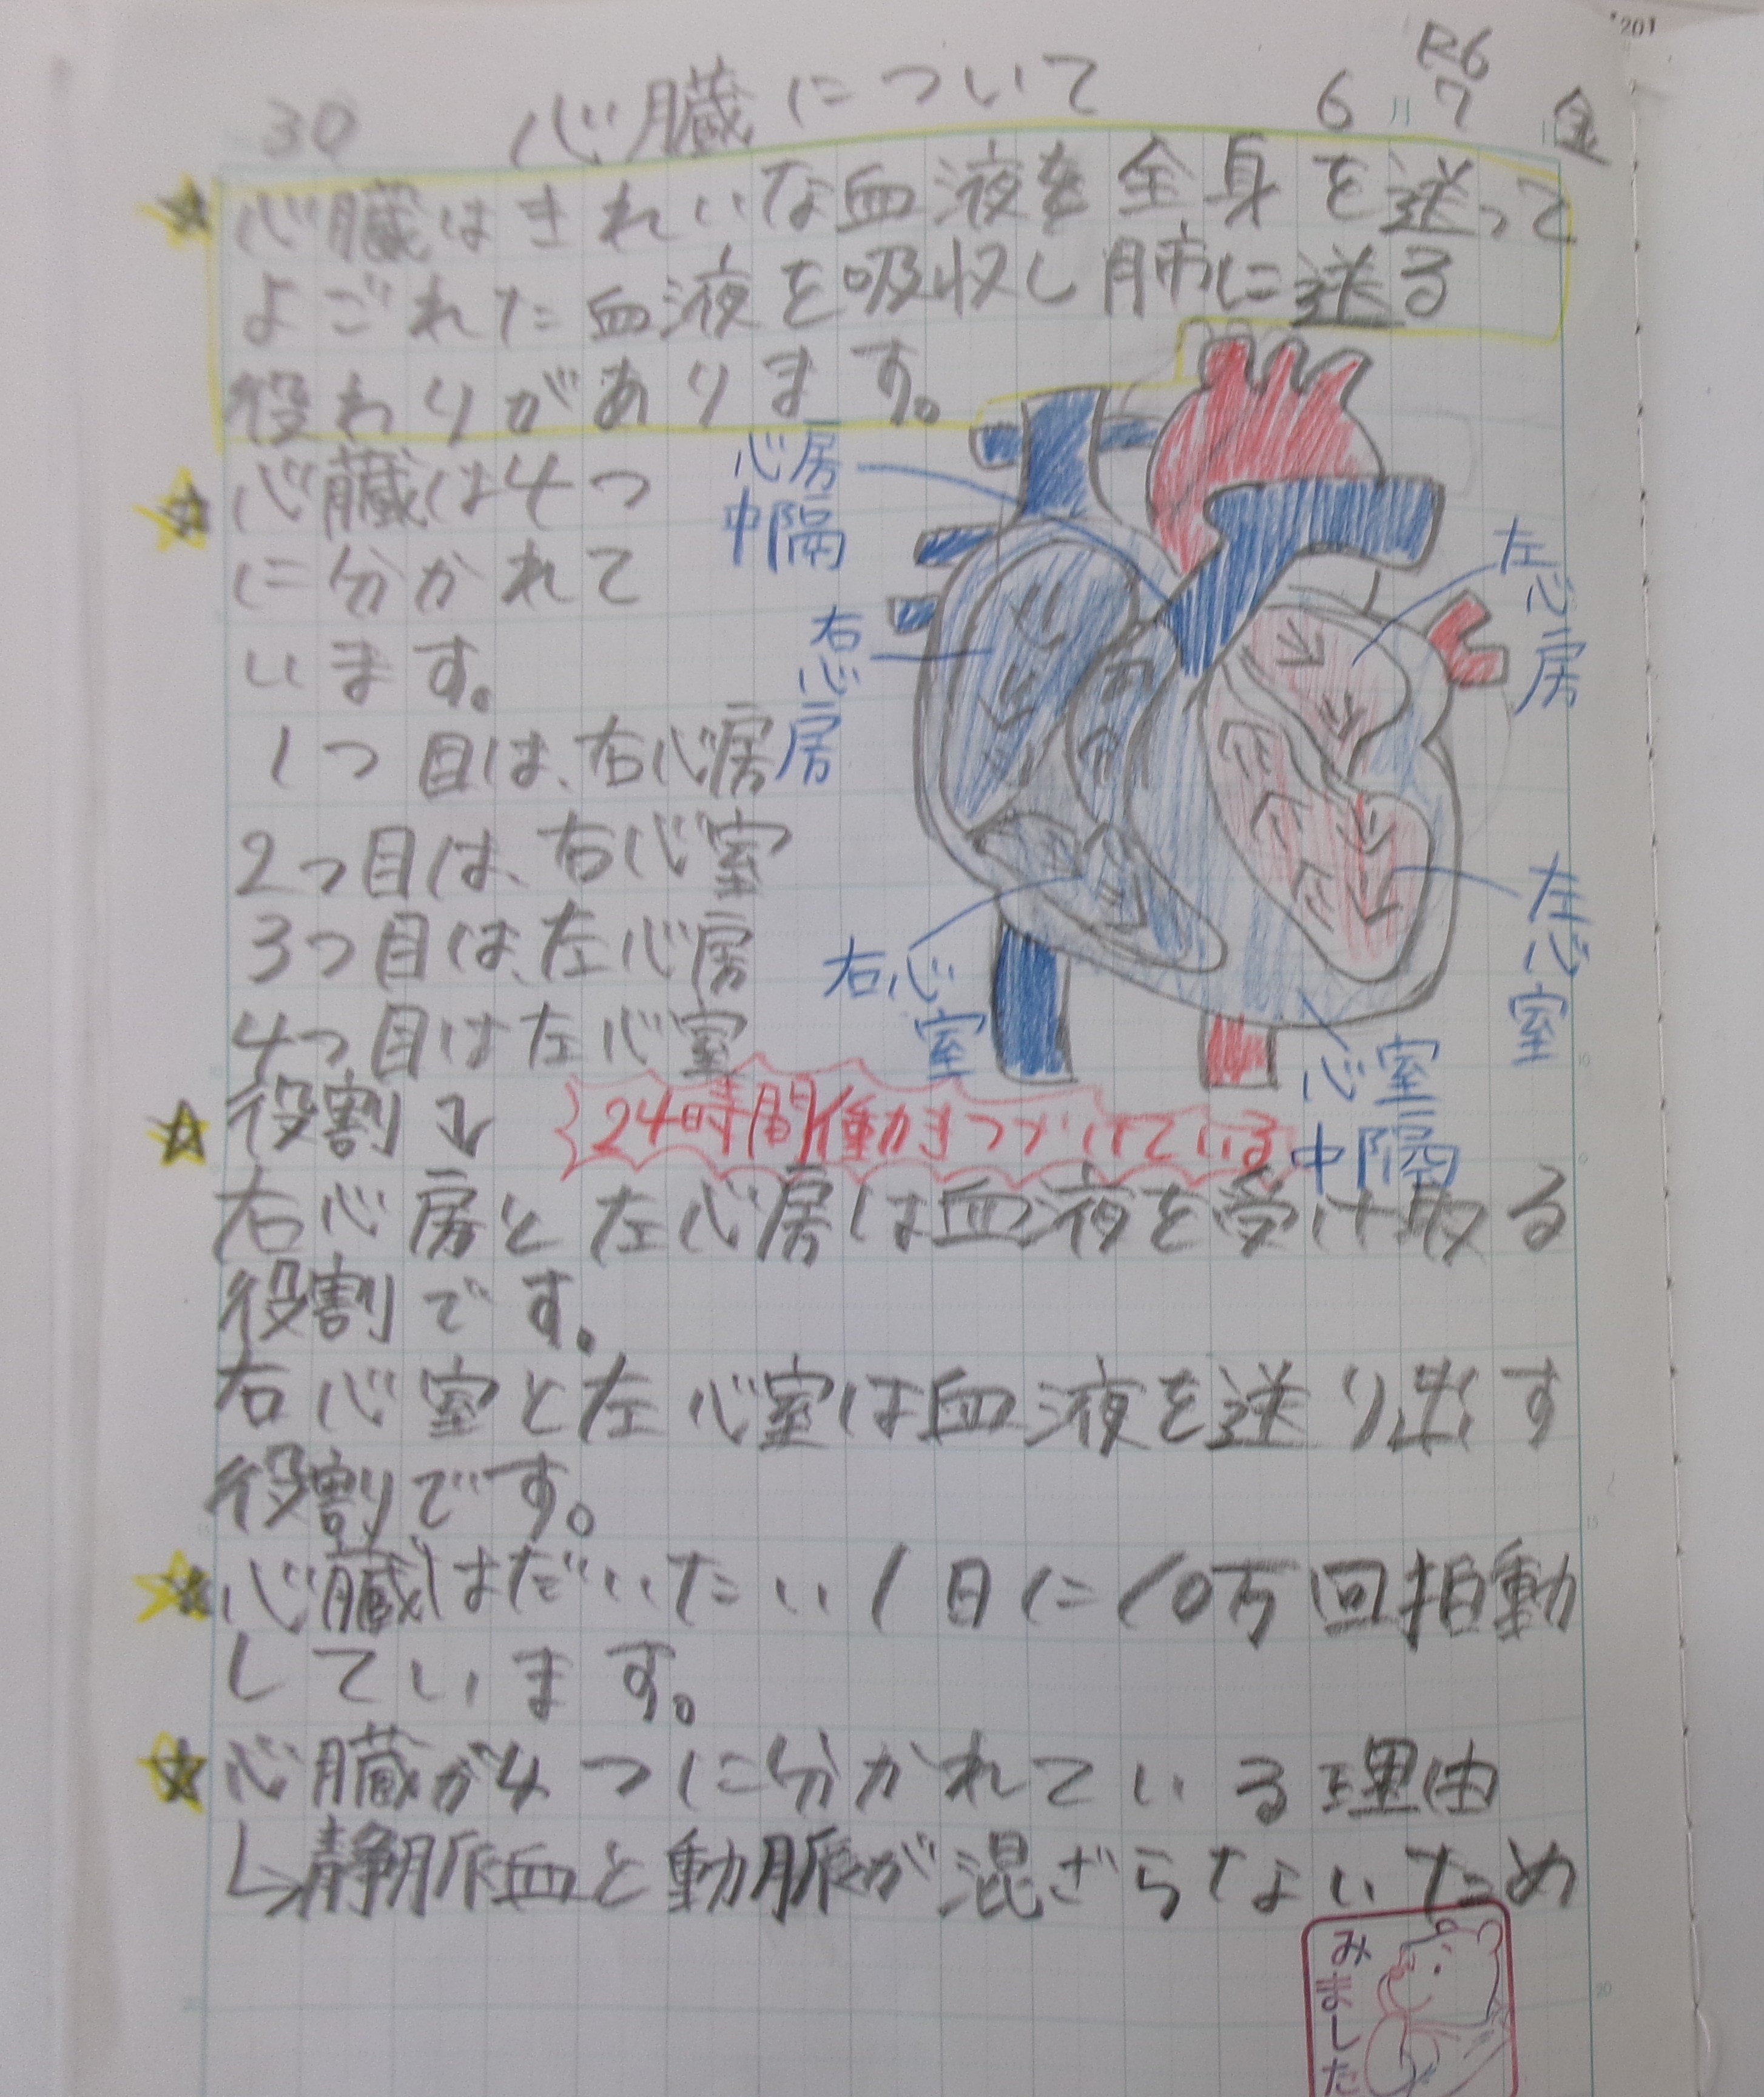 30 心臓について R6 6/7 金
☆心臓はきれいな血液を全身を送って
よごれた血液を吸収し肺に送る
役わりがあります。
☆心臓は4つ
に分かれて
います。
1つ目は、右心房
2つ目は、右心室
3つ目は、左心房
4つ目は左心室
心房
中隔
右心房
左心房
右心室
左心室
心室
中隔
☆役割
24時間動きつづけている
右心房と左心房は血液を受け取る
役割です。
右心室と左心室は血液を送り出す
役割です。
☆心臓はだいたい1日に10万回拍動
しています。
☆心臓が4つに分かれている理由
↳静脈血と動脈が混ざらないため
みました